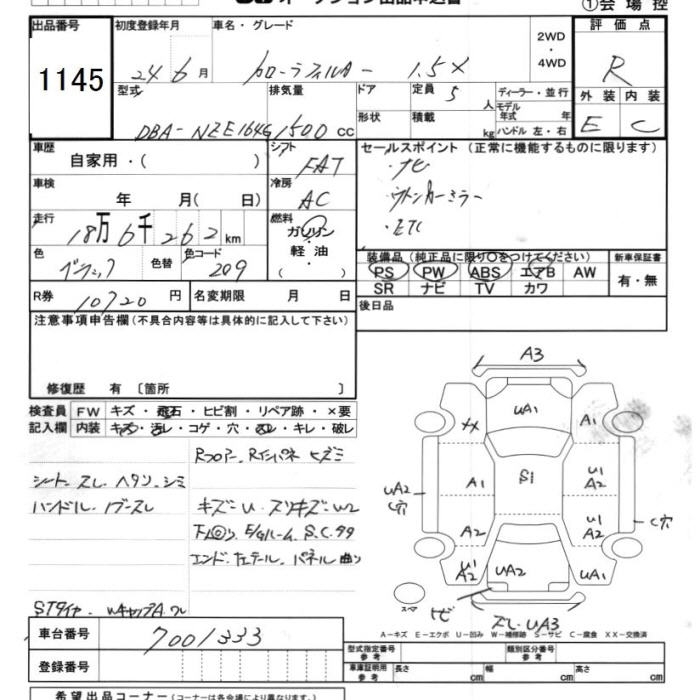 ①会場控
出品番号
1145
初度登録年月
24年6月
車名・グレード
カローラフィルダー 1.5X
2WD
・
4WD
評価点
R
外装 内装
E C
型式
DBA-NZE164G
排気量
1500 cc
ドア
形状
定員 5 人
積載 kg
ディーラー・並行
モデル年式 年
ハンドル 左・右
車歴
自家用・( )
シフト
FAT
車検
年 月( 日)
冷房
AC
走行
18万6千262km
燃料
ガソリン
・
軽油
( )
色
ブラック
色替
色コード
209
R券 10720 円
名変期限 月 日
セールスポイント (正常に機能するものに限ります)
・ナビ
・ウインカーミラー
・ETC
装備品 (純正品に限り○をつけてください)
PS PW ABS エアB AW
SR ナビ TV カワ
新車保証書
有・無
後日品
注意事項申告欄(不具合内容等は具体的に記入して下さい)
修復歴 有 〔箇所 〕
検査員記入欄
FW キズ・飛石・ヒビ割・リペア跡・×要
内装 キズ・汚レ・コゲ・穴・スレ・キレ・破レ
Rフロアー、Rインパネ ヒズミ
シート スレ、ヘタリ、シミ
ハンドル、ノブ スレ
キズ=U スリキズ=W2
下回り、E/Gルーム、S.C.サラ
エンド、カエテール、パネル 曲り
STタイヤ、WキャップA、ワレ
A3
UA1
XX
A1
S1
A1
U1
A2
UA2
C穴
A2
U1
A2
C穴
U1
A2
UA2
UA1
スペア
トビ
スレ、UA3
A-キズ E-エクボ U-凹み W-補修跡 S-サビ C-腐食 XX-交換済
車台番号 7001333
登録番号
型式指定番号 参考
類別区分番号 参考
車庫証明用 参考
長さ cm
幅 cm
高さ cm
希望出品コーナー(コーナーは各会場により異なります)